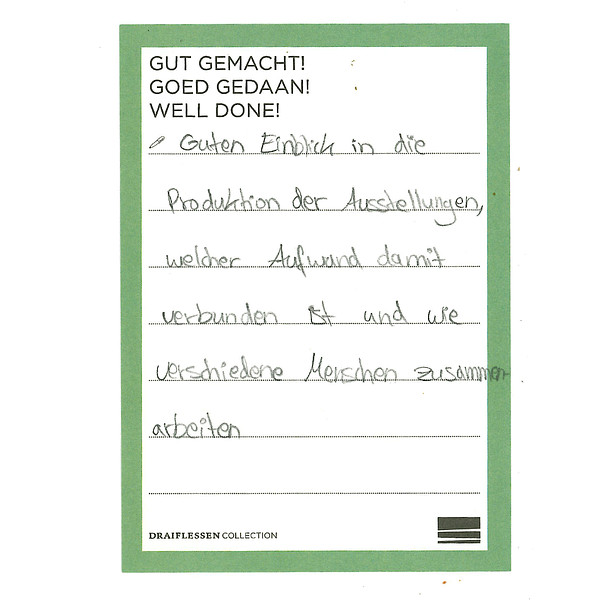 GUT GEMACHT!
GOED GEDAAN!
WELL DONE!
Guten Einblick in die
Produktion der Ausstellungen,
welcher Aufwand damit
verbunden ist und wie
verschiedene Menschen zusammen
arbeiten
DRAIFLESSEN COLLECTION